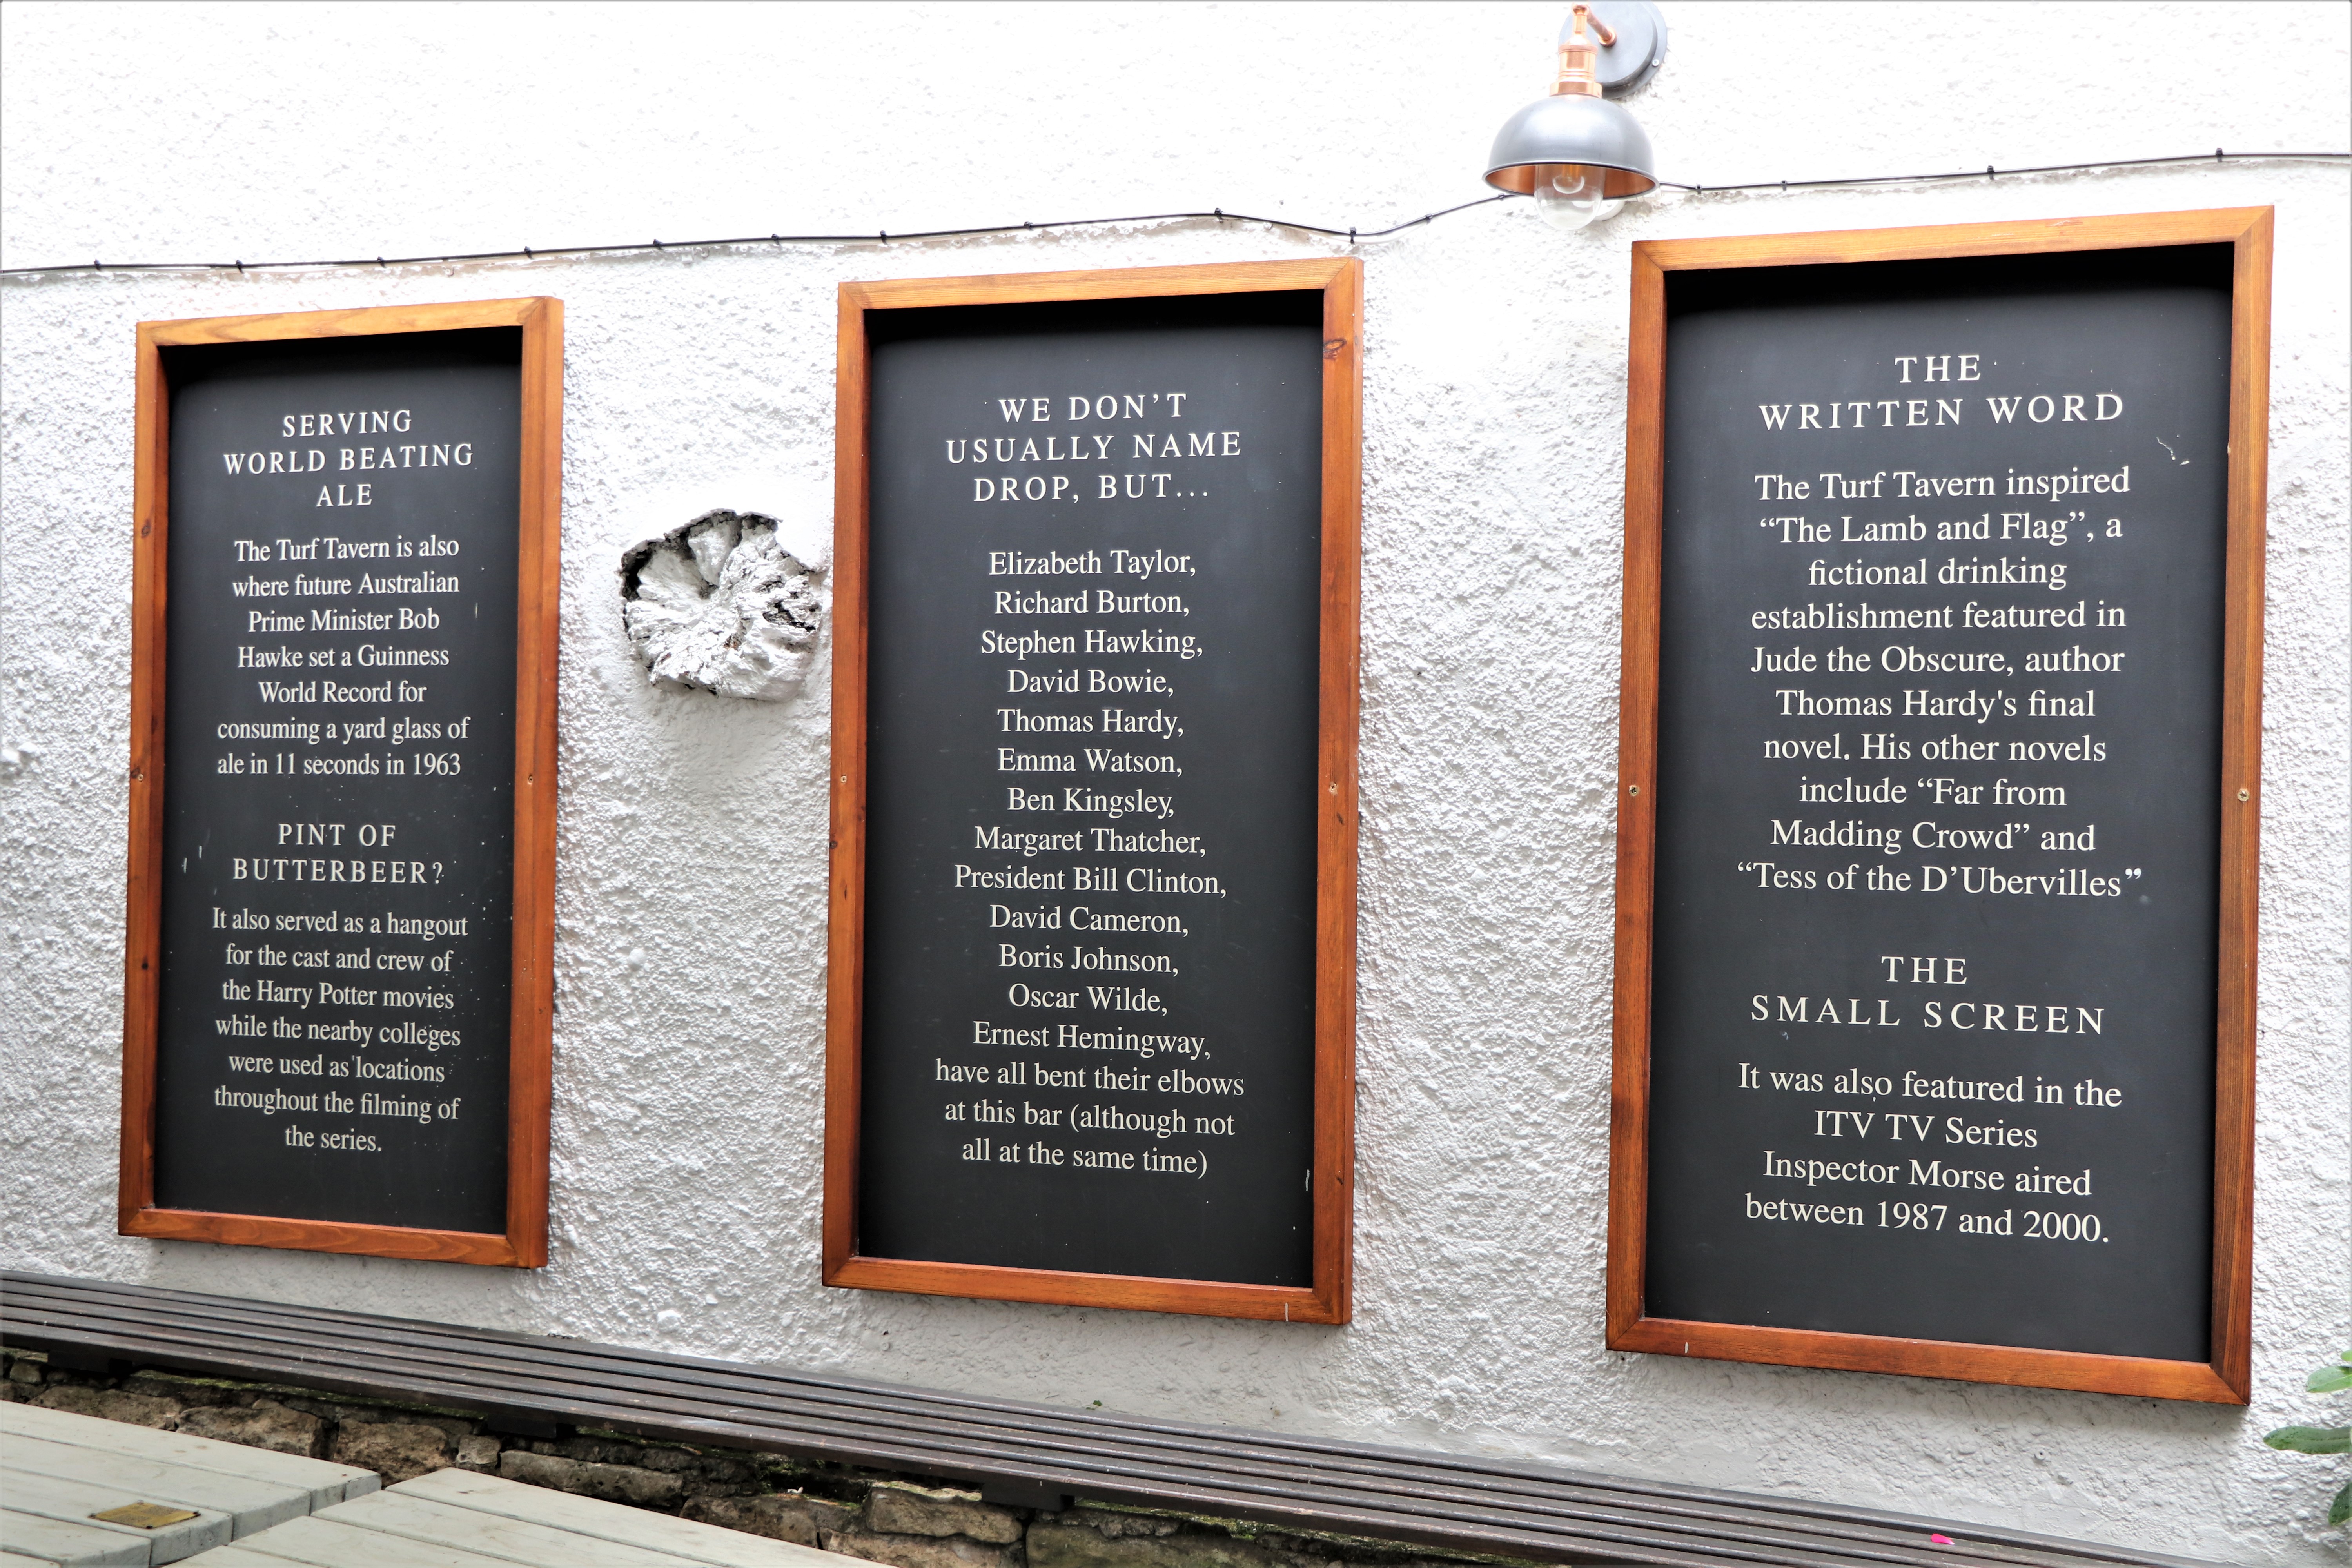 SERVING
WORLD BEATING
ALE
The Turf Tavern is also
where future Australian
Prime Minister Bob
Hawke set a Guinness
World Record for
consuming a yard glass of
ale in 11 seconds in 1963
PINT OF
BUTTERBEER?
It also served as a hangout
for the cast and crew of
the Harry Potter movies
while the nearby colleges
were used as locations
throughout the filming of
the series.
WE DON'T
USUALLY NAME
DROP, BUT...
Elizabeth Taylor,
Richard Burton,
Stephen Hawking,
David Bowie,
Thomas Hardy,
Emma Watson,
Ben Kingsley,
Margaret Thatcher,
President Bill Clinton,
David Cameron,
Boris Johnson,
Oscar Wilde,
Ernest Hemingway,
have all bent their elbows
at this bar (although not
all at the same time)
THE
WRITTEN WORD
The Turf Tavern inspired
“The Lamb and Flag”, a
fictional drinking
establishment featured in
Jude the Obscure, author
Thomas Hardy's final
novel. His other novels
include “Far from
Madding Crowd” and
“Tess of the D’Ubervilles”
THE
SMALL SCREEN
It was also featured in the
ITV TV Series
Inspector Morse aired
between 1987 and 2000.